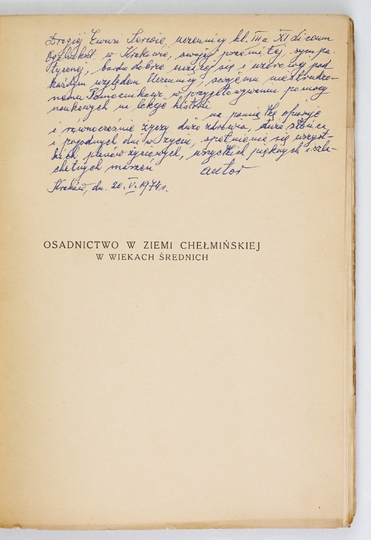 Drogiej Ewuni Serdzie, uczennicy kl. IIIa XI Liceum
Ogólnokszt. w Krakowie, swojej prześmiłej, sympa-
tycznej, bardo dobrze uczącej się i wzorowej pod
każdym względem Uczennicy i szczerze niestrudzo-
nemu Pomocnikowi w przygotowywaniu pomocy
naukowych na lekcje historii
na pamiątkę ofiaruje
i równocześnie życzy dużo zdrowia, dużo słońca
i pogodnych dni w życiu, spełnienia się wszyst-
kich planów życiowych, wszystkich pięknych i szla-
chetnych marzeń
autor
Kraków, dn. 20. V. 1974 r.
OSADNICTWO W ZIEMI CHEŁMIŃSKIEJ
W WIEKACH ŚREDNICH